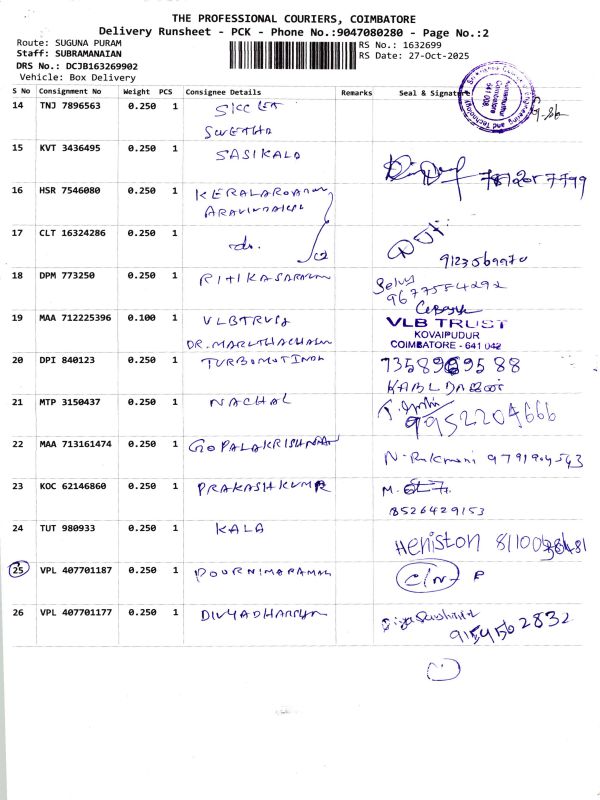 THE PROFESSIONAL COURIERS, COIMBATORE
Delivery Runsheet - PCK - Phone No.:9047080280 - Page No.:2
Route: SUGUNA PURAM
Staff: SUBRAMANAIAN
DRS No.: DCJB163269902
Vehicle: Box Delivery
RS No.: 1632699
RS Date: 27-Oct-2025
S No Consignment No Weight PCS Consignee Details Remarks Seal & Signature
14 TNJ 7896563 0.250 1
SWETHA
15 KVT 3436495 0.250 1 SASIKALA
16 HSR 7546080 0.250 1
17 CLT 16324286 0.250 1 do.
9123569970
18 DPM 773250 0.250 1 Selvi
9677584292
19 MAA 712225396 0.100 1 VLBTRUST
DR. MARUTHACHALAM
VLB TRUST
KOVAIPUDUR
COIMBATORE - 641 042
20 DPI 840123 0.250 1 7358969588
21 MTP 3150437 0.250 1 NACHAL
9952204666
22 MAA 713161474 0.250 1 GOPALAKRISHNAN
N. Rukmani
23 KOC 62146860 0.250 1 PRAKASH KUMAR
8526429153
24 TUT 980933 0.250 1 KALA
Heniston
25 VPL 407701187 0.250 1 C/N P
26 VPL 407701177 0.250 1
9154562832